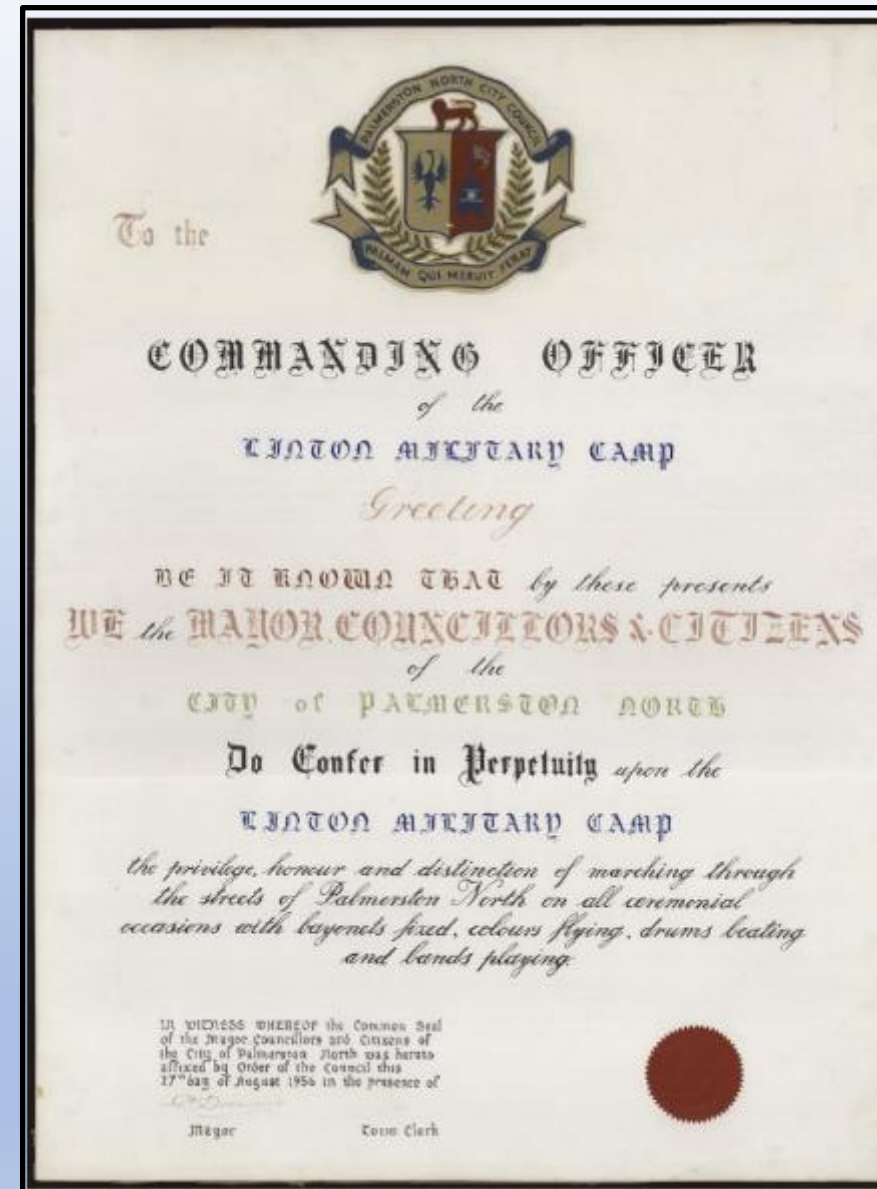 PALMERSTON NORTH CITY COUNCIL
PALMAM QUI MERUIT FERAT
To the
COMMANDING OFFICER
of the
LINTON MILITARY CAMP
Greeting
BE IT KNOWN THAT by these presents
WE the MAYOR, COUNCILLORS & CITIZENS
of the
CITY of PALMERSTON NORTH
Do Confer in Perpetuity upon the
LINTON MILITARY CAMP
the privilege, honour and distinction of marching through
the streets of Palmerston North on all ceremonial
occasions with bayonets fixed, colours flying, drums beating
and bands playing.
IN WITNESS WHEREOF the Common Seal
of the Mayor Councillors and Citizens of
the City of Palmerston North was hereto
affixed by Order of the Council this
17th day of August 1956 in the presence of
Mayor Town Clerk